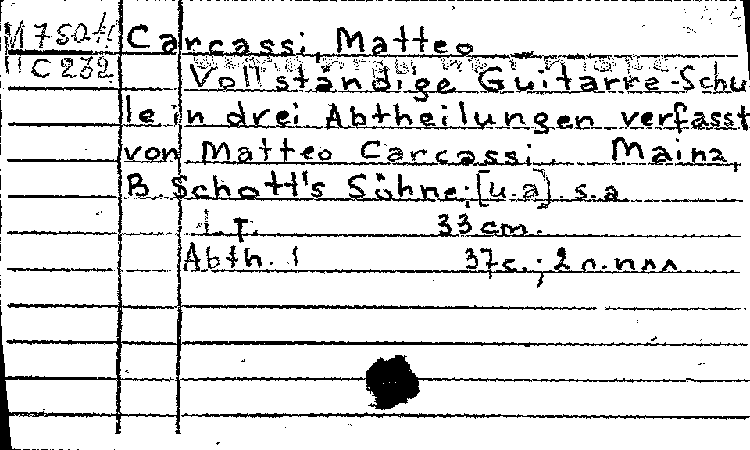 Carcassi, Matteo
C 232 Vollständige Guitarre-Schu
le in drei Abtheilungen verfasst
von Matteo Carcassi. Mainz,
B Schott's Söhne; [u.a] s.a
33 cm.
Abth. 1 37 c.; 2